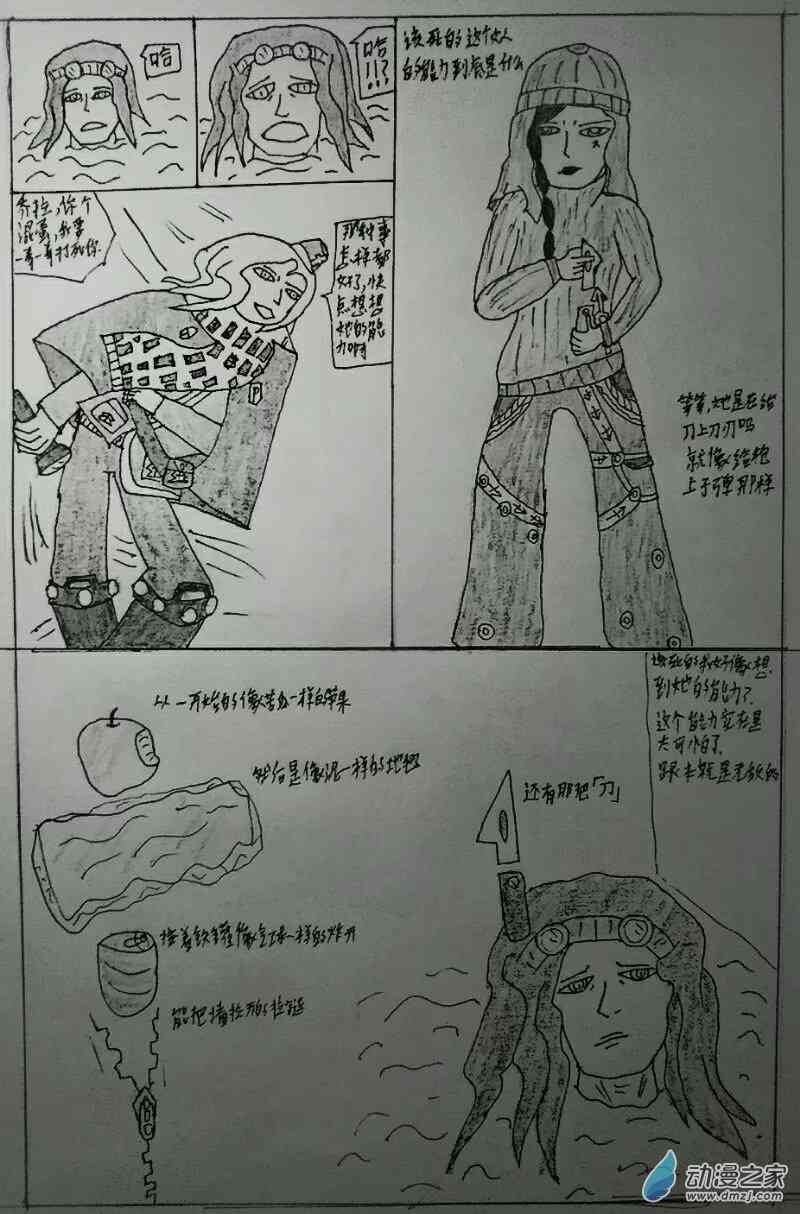 哈
哈
!!?
该死的这个女人
的能力到底是什么
乔拉,你个
混蛋,我要
一寸一寸打死你.
那种事
怎样都
好了,快
点想想
她的能
力啊
P
等等,她是在给
刀上刀刃吗
就像给枪
上子弹那样
从一开始的像苦瓜一样的苹果
然后是像泥一样的地板
接着铁罐像气球一样的炸开
能把墙拉开的拉链
还有那把「刀」
该死的我好像想
到她的能力了.
这个能力实在是
太可怕了.
跟本就是无敌的
动漫之家
www.dmzj.com